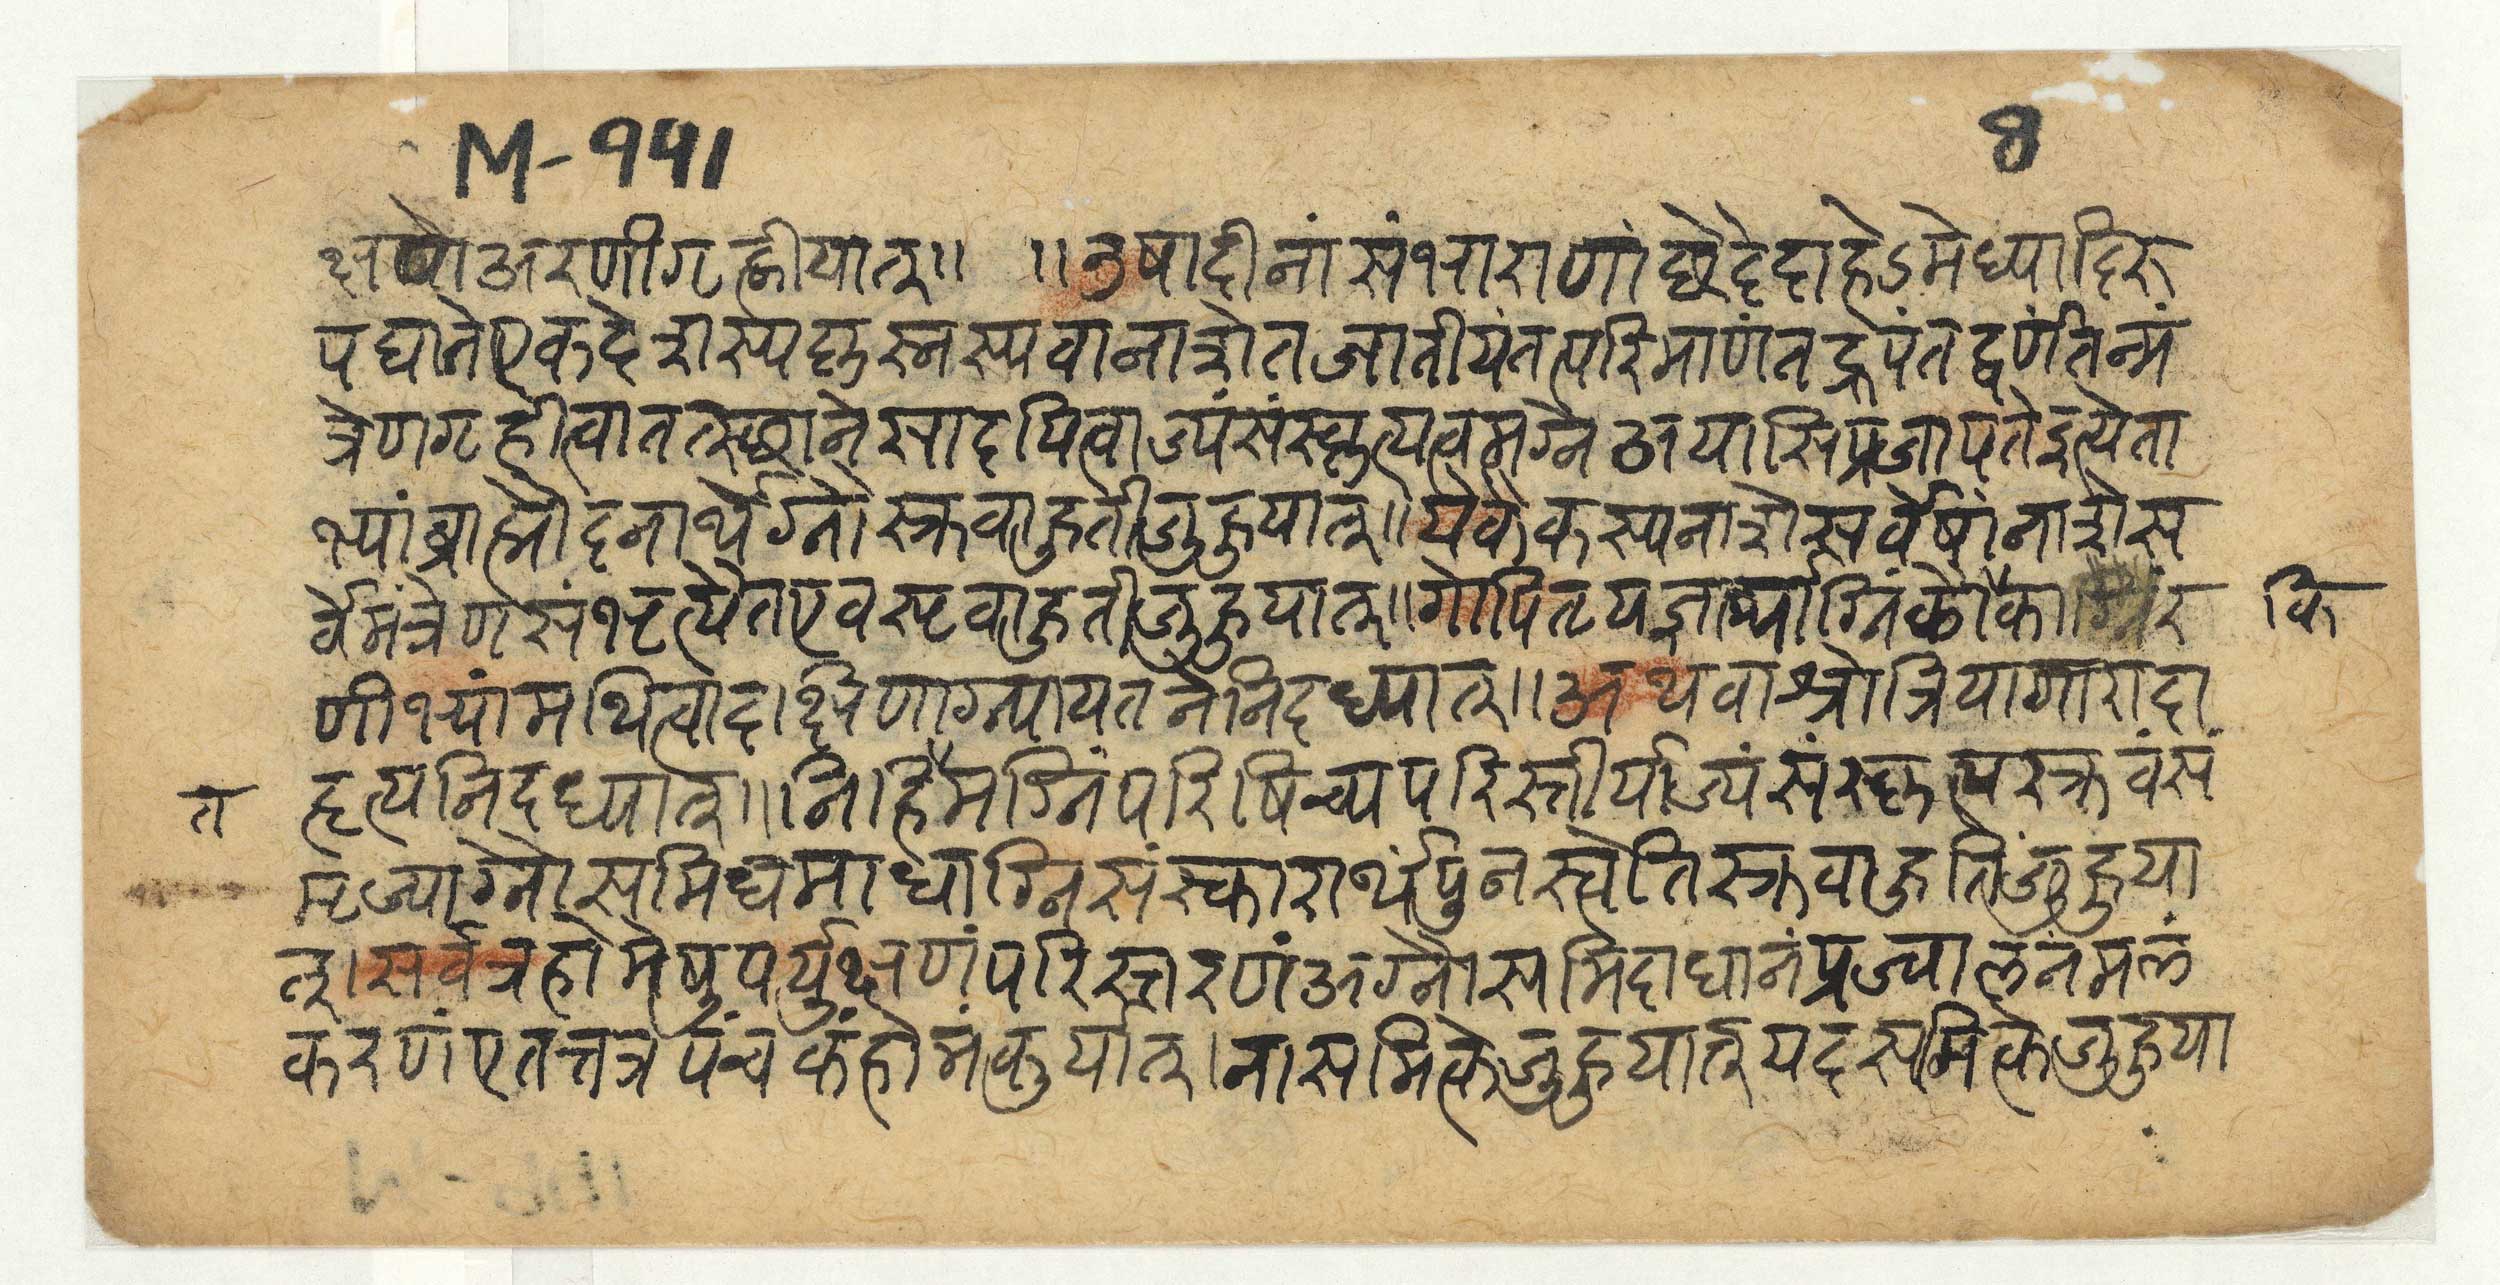 M-१५१
8
क्षणो अरणी गृह्णीयात्॥ ॥ उषादीनां संभाराणां छेदे दाहेऽमेध्यादिरु
पघाते एकदेशस्य कृत्स्नस्य वा नाशे तज्जातीयं तत्परिमाणं तद्रूपं तद्वर्णं तन्मं
त्रेण गृहीत्वा तत्स्थाने सादयित्वाज्यं संस्कृत्य त्वमग्ने अयासि प्रजापते इत्येता
भ्यां ब्राह्मौदनार्थेग्नौ स्रुवाहुती जुहुयात्॥ येकैकस्य नाशे सर्वेषां नाशे स
र्वैर्मंत्रेण संभृत्यैत एव स्रुवाहुती जुहुयात्॥ गोपितृयज्ञार्थाग्निं लौका र
कि
णीभ्यां मथित्वा दक्षिणाग्न्यायतने निदध्यात्॥ अथवा श्रोत्रियागारादा
हृत्य निदध्यात्॥ निहितमग्निं परिषिच्य परिस्तीर्याज्यं संस्कृत्य स्रुवं सं
त
मृज्याग्नौ समिधमाधाग्निसंस्कारार्थं पुनस्त्वेति स्रुवाहुतिं जुहुया
त्। सर्वत्र होमेषु पर्युक्षणं परिस्तरणं अग्नौ समिदाधानं प्रज्वालनमलं
करणं एतत्तत्र पंचकं होमं कुर्यात्। नासमित्के जुहुयात् यदसमित्के जुहुया